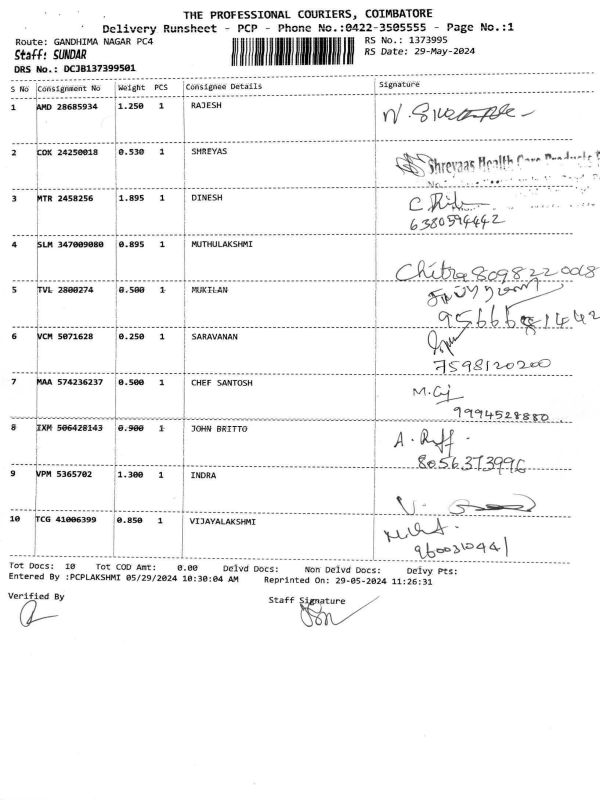 THE PROFESSIONAL COURIERS, COIMBATORE
Delivery Runsheet - PCP - Phone No.:0422-3505555 - Page No.:1
Route: GANDHIMA NAGAR PC4 RS No.: 1373995
Staff: SUNDAR RS Date: 29-May-2024
DRS No.: DCJB137399501
S No Consignment No Weight PCS Consignee Details Signature
1 AMD 28685934 1.250 1 RAJESH
2 COK 24250018 0.530 1 SHREYAS
Shreyaas Health Care Products
3 MTR 2458256 1.895 1 DINESH
6380594442
4 SLM 347009080 0.895 1 MUTHULAKSHMI
Chitra 8098220018
5 TVL 2800274 0.500 1 MUKILAN
6 VCM 5071628 0.250 1 SARAVANAN
7598120200
7 MAA 574236237 0.500 1 CHEF SANTOSH
9994528880
8 IXM 506428143 0.900 1 JOHN BRITTO
8056373996
9 VPM 5365702 1.300 1 INDRA
10 TCG 41006399 0.850 1 VIJAYALAKSHMI
9600310441
Tot Docs: 10 Tot COD Amt: 0.00 Delvd Docs: Non Delvd Docs: Delvy Pts:
Entered By :PCPLAKSHMI 05/29/2024 10:30:04 AM Reprinted On: 29-05-2024 11:26:31
Verified By Staff Signature